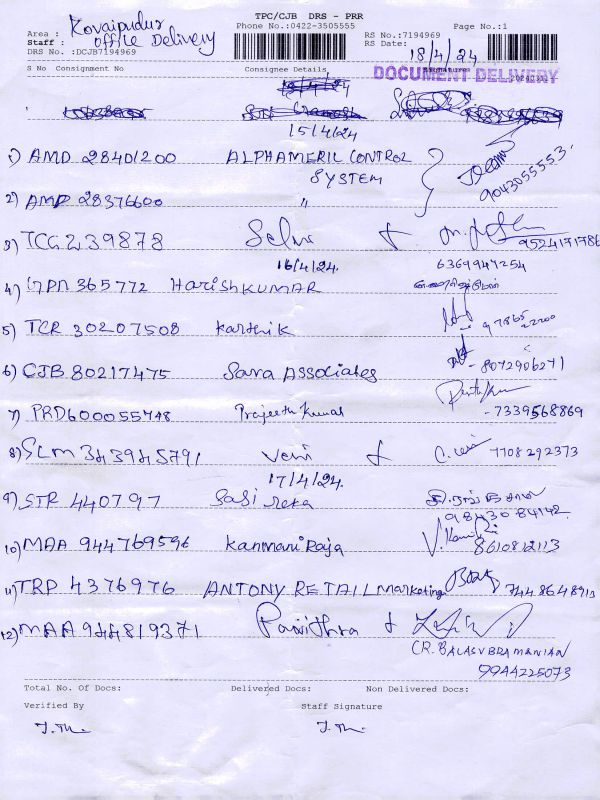 TPC/CJB DRS - PRR
Area : Kovaipudur Phone No.:0422-3505555 Page No.:1
Staff : office Delivery RS No.:7194969
DRS No. :DCJB7194969 RS Date: 18/4/24
S No Consignment No Consignee Details Signature
DOCUMENT DELIVERY
15/4/24
1) AMD 28401200 ALPHAMERIL CONTROL
SYSTEM 9043055553
2) AMD 28376600 "
3) TCG 239878 Selvi & 9524171786
16/4/24. 6369947254
4) 365772 HARISHKUMAR
5) TCR 30207508 Karthik
6) CJB 80217475 Sara Associates - 8072906271
7) PRD600055748 Prajeeth Kumar - 7339568869
8) SLM 343945791 Veni & 7708292373
17/4/24.
9) STR 440797 Sasi reka
9843084142
10) MAA 944769596 Kanmani Raja 8610812113
11) TRP 4376976 ANTONY RETAIL Marketing
12) MAA 944819371 Pavithra &
CR. BALASUBRAMANIAN
9944225073
Total No. Of Docs: Delivered Docs: Non Delivered Docs:
Verified By Staff Signature